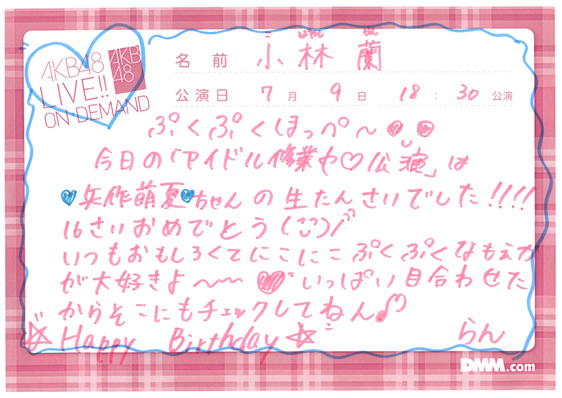 AKB48
LIVE!!
ON DEMAND
AKB
48
こ ばやし らん
名 前 小 林 蘭
公演日 7 月 9 日 18 : 30 公演
ぷくぷくほっぺ〜
今日の「アイドル修業中♡公演」は
矢作萌夏ちゃんの生たんさいでした!!!!
16さいおめでとう
いつもおもしろくてにこにこぷくぷくなもえカ
が大好きよ〜〜 いっぱい目合わせた
からそこにもチェックしてねん♪♡
☆Happy Birthday☆ らん
DMM.com